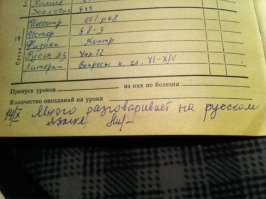 Химия
Зоология §43
История § 8-9
Физика Контр
Русск яз Упр 12
Литерат Вопросы к гл. XI-XIV
Пропуск уроков на них по болезни
Количество опозданий на уроки
14/X Много разговаривает на русском
языке.